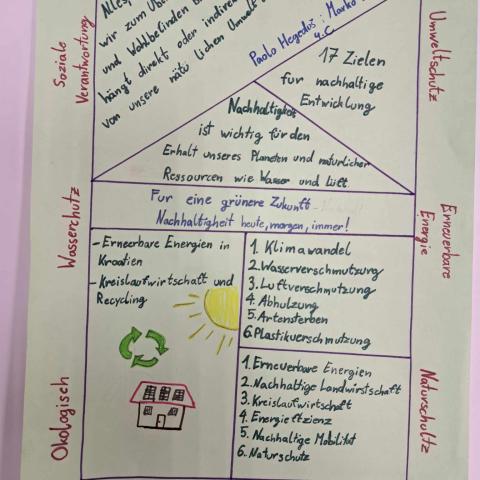 Alles,
wir zum Übe
und Wohlbefinden b
hängt direkt oder indirek
von unsere natü lichen Umwelt
Paolo Hegeduš i Marko
4.C
17 Zielen
für nachhaltige
Entwicklung
Nachhaltigkeit
ist wichtig für den
Erhalt unseres Planeten und naturlicher
Ressourcen wie Wasser und Luft
Fur eine grünere Zukunft
Nachhaltigkeit heute, morgen, immer!
-Erneerbare Energien in
Kroatien
-Kreislaufwirtschaft und
Recycling
1. Klimawandel
2.Wasserverschmutzung
3.Luftverschmutzung
4. Abholzung
5.Artensterben
6.Plastikverschmutzung
1.Erneuerbare Energien
2.Nachhaltige Landwirstschaft
3.Kreislaufwirtschaft
4. Energieffzienz
5. Nachhaltige Mobilität
6. Naturschutz
Soziale
Verantwortung
Wasserchutz
Okologisch
Umweltschutz
Erneuerbare
Energie
Naturschultz